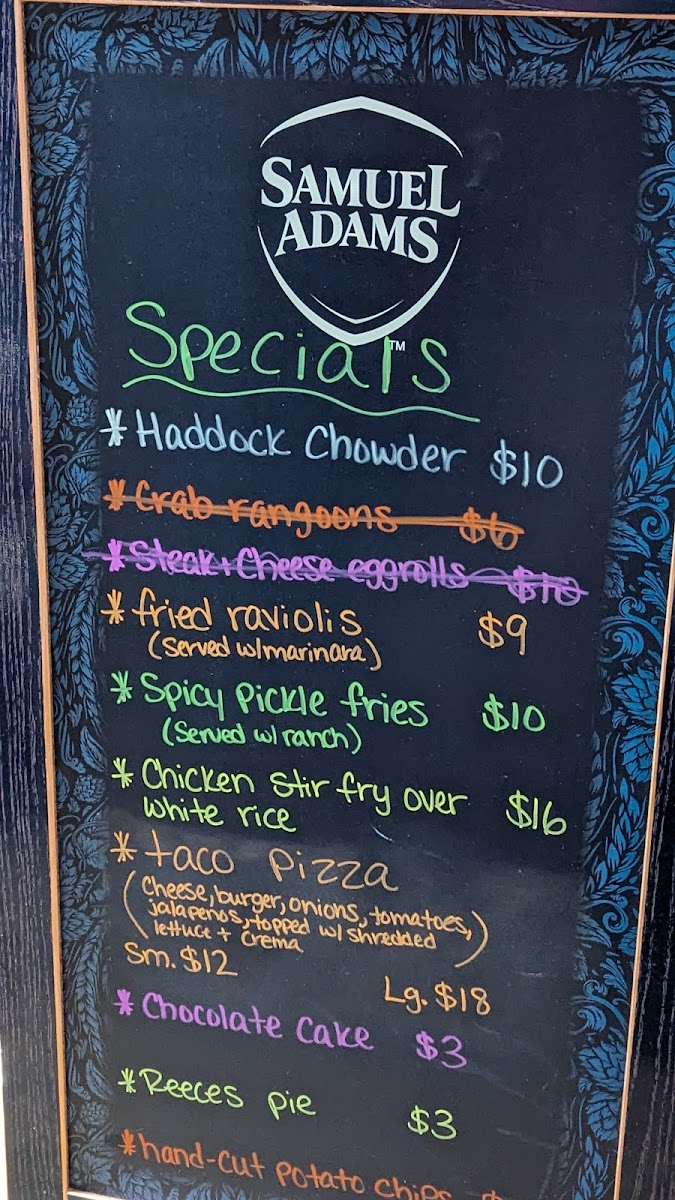 SAMUEL
ADAMS
TM
Specials
* Haddock Chowder $10
* Crab rangoons $6
* Steak + Cheese eggrolls $10
* fried raviolis $9
(Served w/marinara)
* Spicy Pickle fries $10
(Served w/ ranch)
* Chicken Stir fry over $16
white rice
* taco pizza
(Cheese, burger, onions, tomatoes,
jalapenos, topped w/ shredded
lettuce + crema)
Sm. $12 Lg. $18
* Chocolate Cake $3
* Reeces pie $3
* hand-cut potato chips